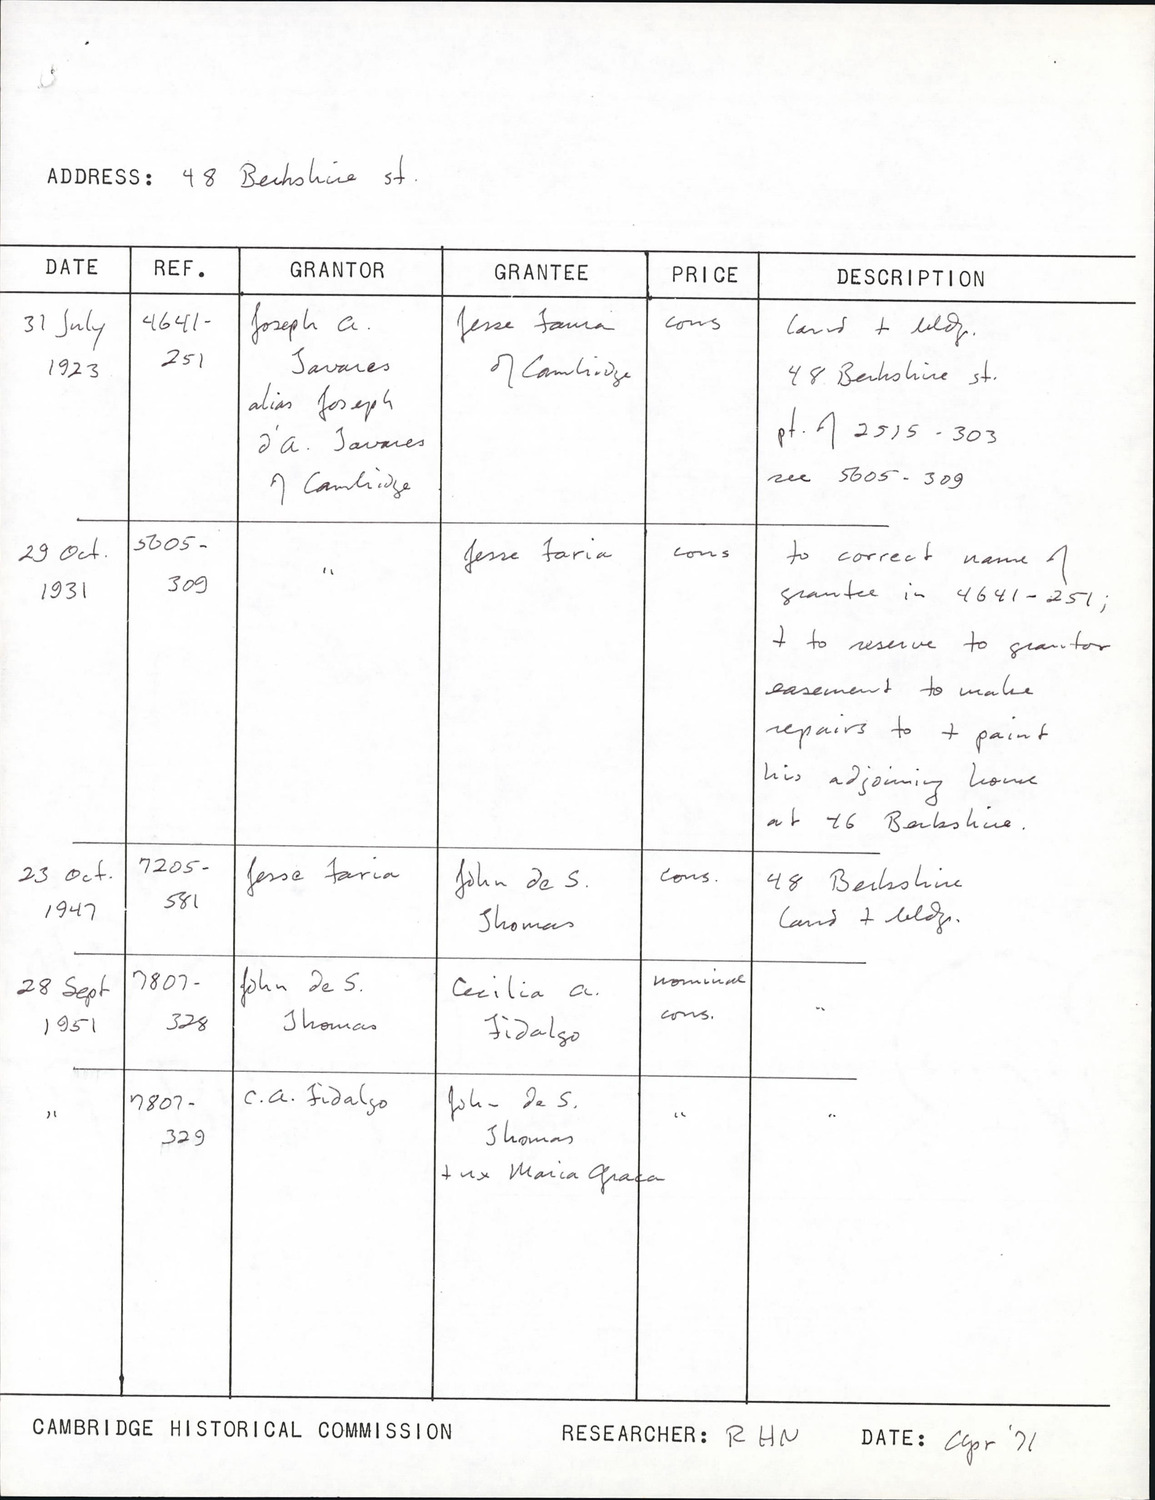 ADDRESS: 48 Berkshire st.
DATE REF. GRANTOR GRANTEE PRICE DESCRIPTION
31 July 1923
4641-251
Joseph A.
Tavares
alias Joseph
d'A. Tavares
of Cambridge
Jesse Fauria
of Cambridge
cons
land + bldg.
48 Berkshire st.
pt. of 2515-303
see 5605-309
29 Oct.
1931
5605-
309
"
Jesse Faria
cons
to correct name of
grantee in 4641-251;
+ to reserve to grantor
easement to make
repairs to + paint
his adjoining house
at 46 Berkshire.
23 Oct.
1947
7205-
581
Jesse Faria
John de S.
Thomas
cons.
48 Berkshire
land + bldg.
28 Sept
1951
7807-
328
John de S.
Thomas
Cecilia A.
Fidalgo
nominal
cons.
"
"
7807-
329
C.A. Fidalgo
John de S.
Thomas
+ ux Maria Graca
"
"
CAMBRIDGE HISTORICAL COMMISSION RESEARCHER: RHN DATE: Apr '71